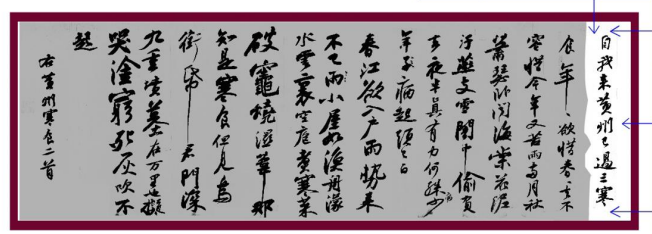 自我来黄州已過三寒
食年〻欲惜春〻去不
容惜今年又苦雨兩月秋
蕭瑟卧聞海棠花泥
汙燕支雪闇中偷負
去夜半真有力何殊少
年子病起頭已白
春江欲入戶雨勢來
不已雨小屋如漁舟濛〻
水雲裏空庖煮寒菜
破竈燒濕葦那
知是寒食但見烏
銜帋君門深
九重墳墓在万里也擬
哭塗窮死灰吹不
起
右黄州寒食二首